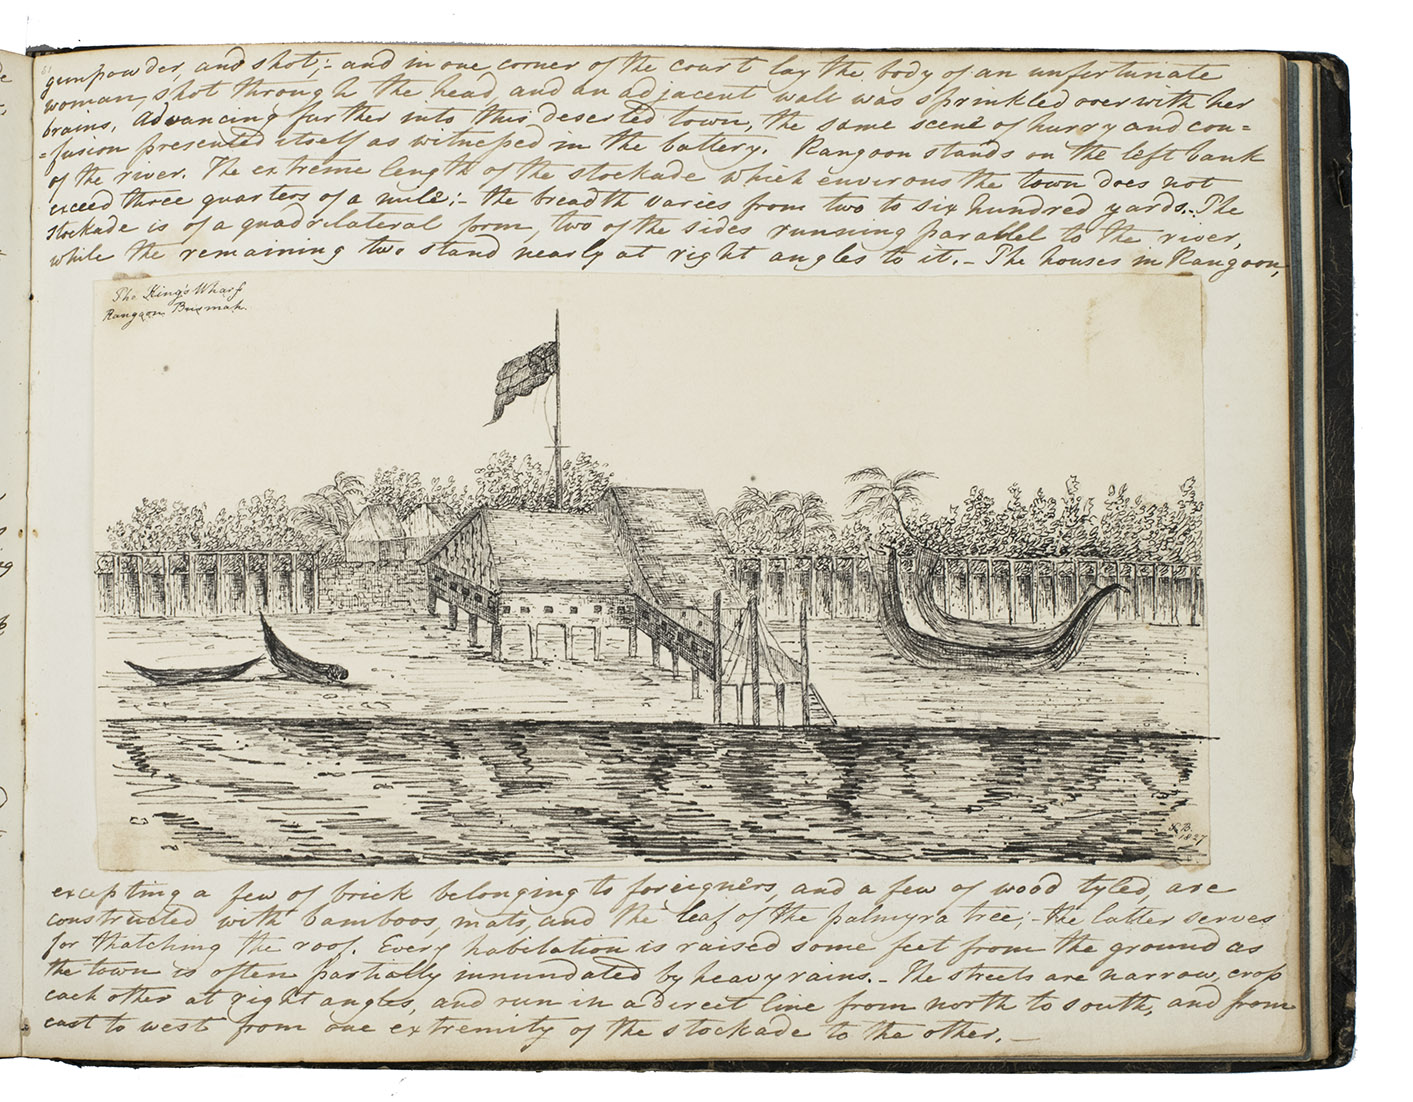 61
gunpowder, and shot;- and in one corner of the court lay the body of an unfortunate
woman, shot through the head, and an adjacent wall was sprinkled over with her
brains. Advancing further into this deserted town, the same scene of hurry and con=
=fusion presented itself as witnessed in the battery. Rangoon stands on the left bank
of the river. The extreme length of the stockade which environs the town does not
exceed three quarters of a mile;- the breadth varies from two to six hundred yards.- The
stockade is of a quadrilateral form, two of the sides running parallel to the river,
while the remaining two stand nearly at right angles to it.- The houses in Rangoon,
The King's Wharf
Rangoon Burmah.
B.
1827
excepting a few of brick belonging to foreigners, and a few of wood tyled, are
constructed with bamboos, mats, and the leaf of the palmyra tree; the latter serves
for thatching the roof. Every habitation is raised some feet from the ground as
the town is often partially innundated by heavy rains.- The streets are narrow, cross
each other at right angles, and run in a direct line from north to south, and from
east to west from one extremity of the stockade to the other.-